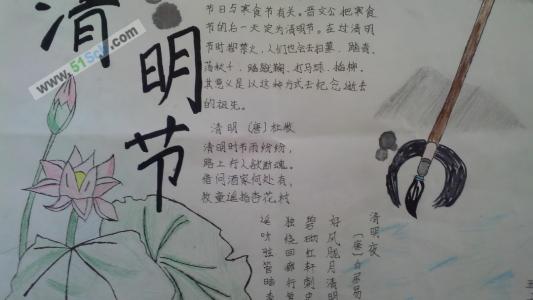 清明节
www.51Sch.com
节日与寒食节有关。晋文公把寒食
节的后一天定为清明节。在过清明
节时都禁火，人们也会去扫墓、踏青、
荡秋千、踏蹴鞠、打马球、插柳。
其意义是以这种方式去纪念逝去
的祖先。
清明 (唐) 杜牧
清明时节雨纷纷，
路上行人欲断魂。
借问酒家何处有，
牧童遥指杏花村
清明夜
(唐) 白居易
好风胧月清明
碧砌红轩刺史
独绕回廊行
遥听弦管暗